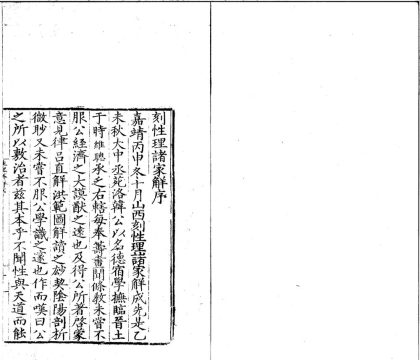 刻性理諸家解序
嘉靖丙申冬十月山西刻性理諸家解成先是乙
未秋大中丞苑洛韓公以名德宿學撫臨晉土
于時維聰承之右轄每奉籌畫聞條教未嘗不
服公經濟之大謨猷之遠也及得公所著啓蒙
意見律呂直解洪範圖解讀之妙契陰陽剖析
微眇又未嘗不服公學識之邃也作而嘆曰公
之所以敷治者茲其本乎不聞性與天道而能